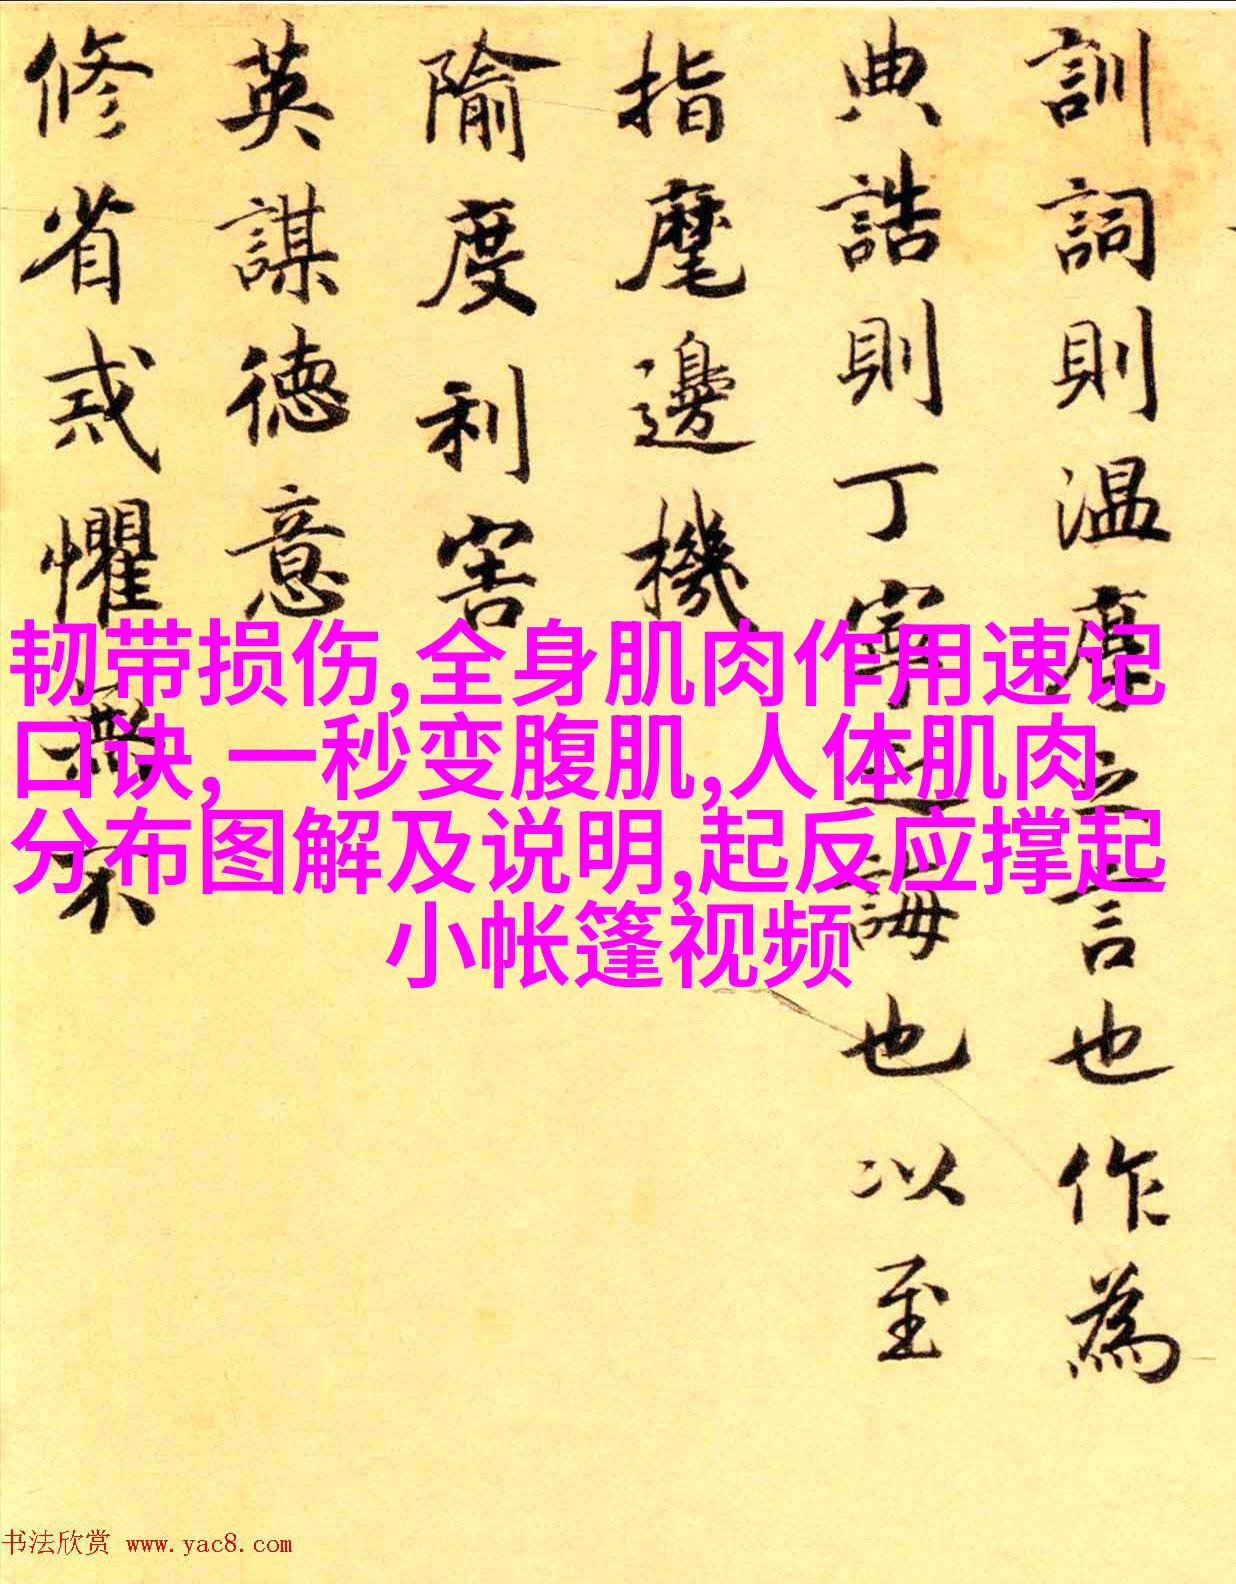 訓詞則温厚之言也作為
典誥則丁寧之誨也以至
指麾邊機
隃度利害
英謀德意
修省戒懼無不
韧带损伤,全身肌肉作用速记
口诀,一秒变腹肌,人体肌肉
分布图解及说明,起反应撑起
小帐篷视频
书法欣赏 www.yac8.com